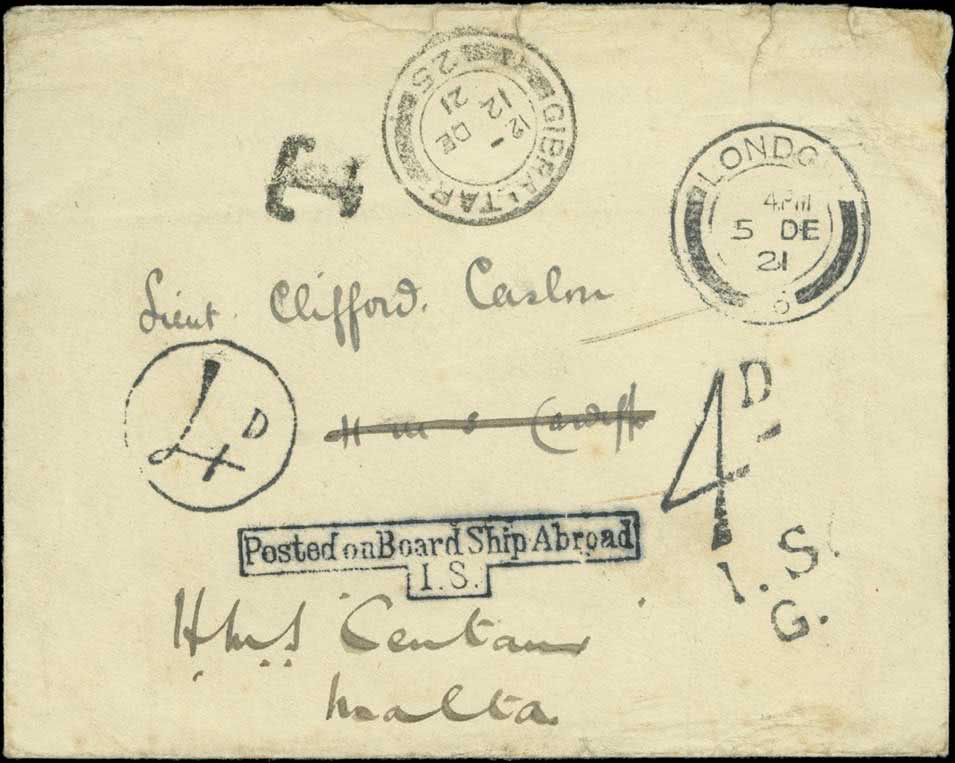 GIBRALTAR
25
12 -
DE
12
21
T
LONDO
4.PM
5 DE
21
6
Lieut. Clifford. Caslon
4D
H M S Cardiff
4D
Posted on Board Ship Abroad
I.S.
I.S.
G.
H.M.S "Centaur"
Malta.